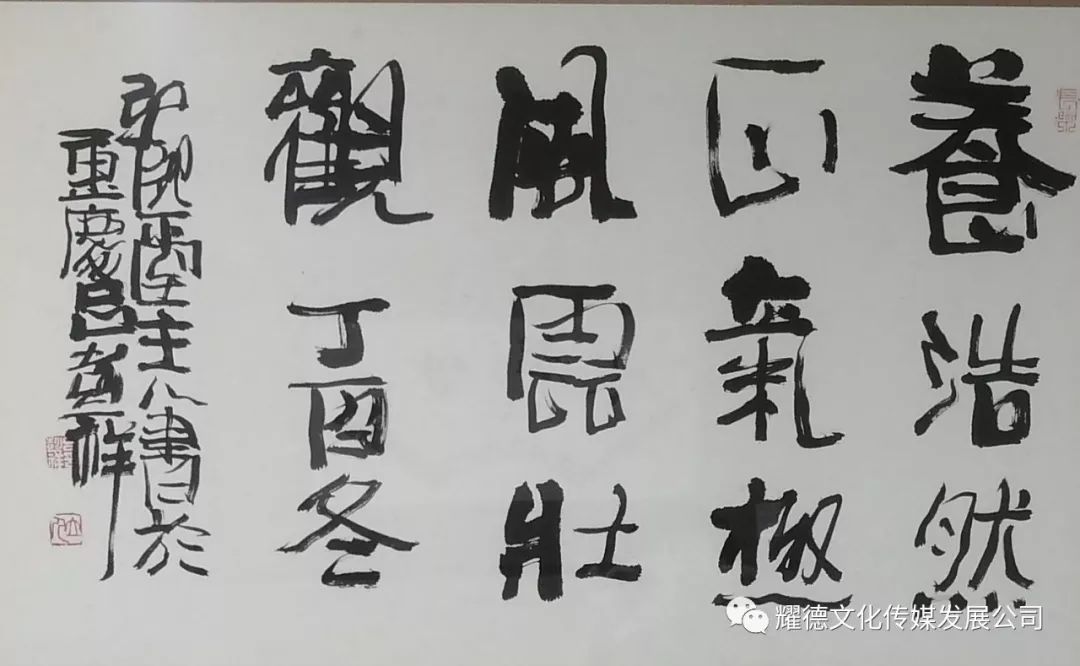 養浩然
正氣極
風雲壯
觀丁酉冬
主人書於
重慶呂孝祥
耀德文化传媒发展公司